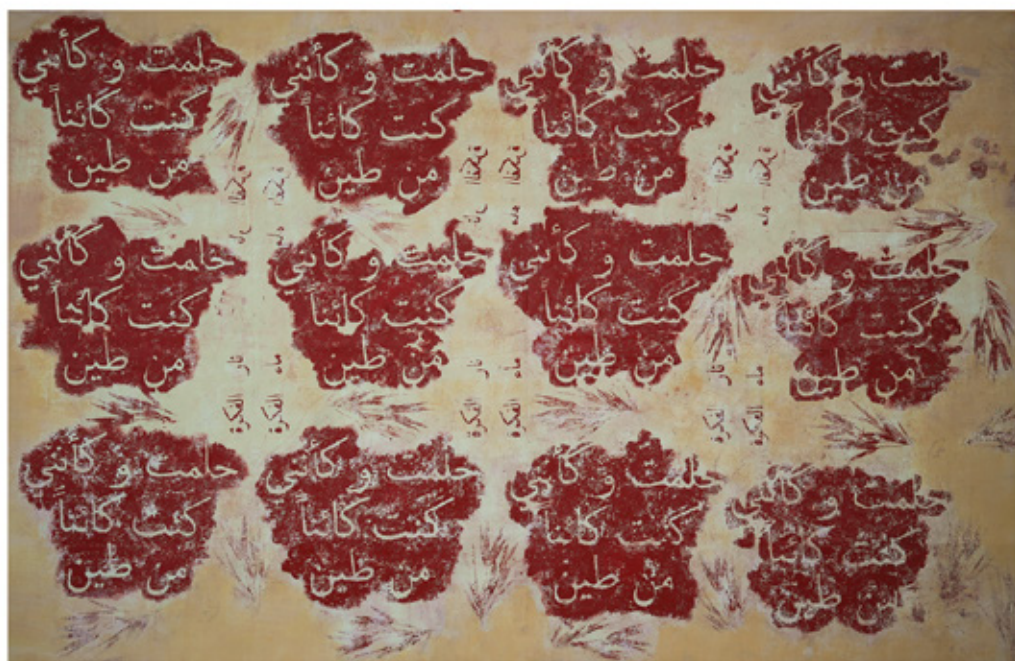 حلمت و كأنني
كنت كائناً
من طين
حلمت و كأنني
كنت كائناً
من طين
حلمت و كأنني
كنت كائناً
من طين
حلمت و كأنني
كنت كائناً
من طين
حلمت و كأنني
كنت كائناً
من طين
حلمت و كأنني
كنت كائناً
من طين
حلمت و كأنني
كنت كائناً
من طين
حلمت و كأنني
كنت كائناً
من طين
حلمت و كأنني
كنت كائناً
من طين
حلمت و كأنني
كنت كائناً
من طين
حلمت و كأنني
كنت كائناً
من طين
حلمت و كأنني
كنت كائناً
من طين
ماء الفكرة
نار الفكرة
ماء الفكرة
نار الفكرة
ماء الفكرة
نار الفكرة